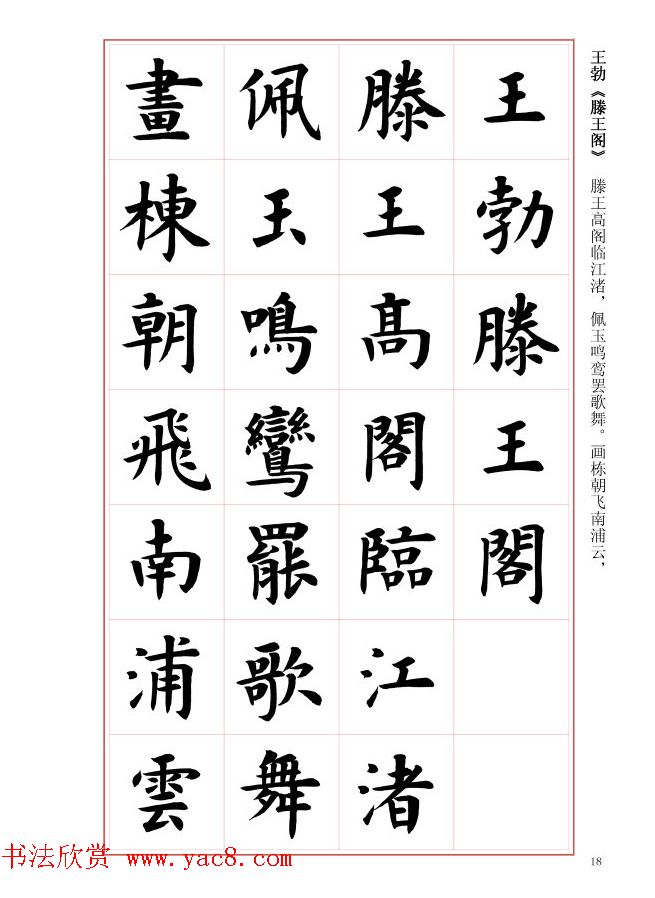 王勃《滕王阁》　滕王高阁临江渚，佩玉鸣鸾罢歌舞。画栋朝飞南浦云，
王勃滕王閣
滕王髙閣臨江渚
佩玉鳴鸞罷歌舞
畫棟朝飛南浦雲
书法欣赏 www.yac8.com
18